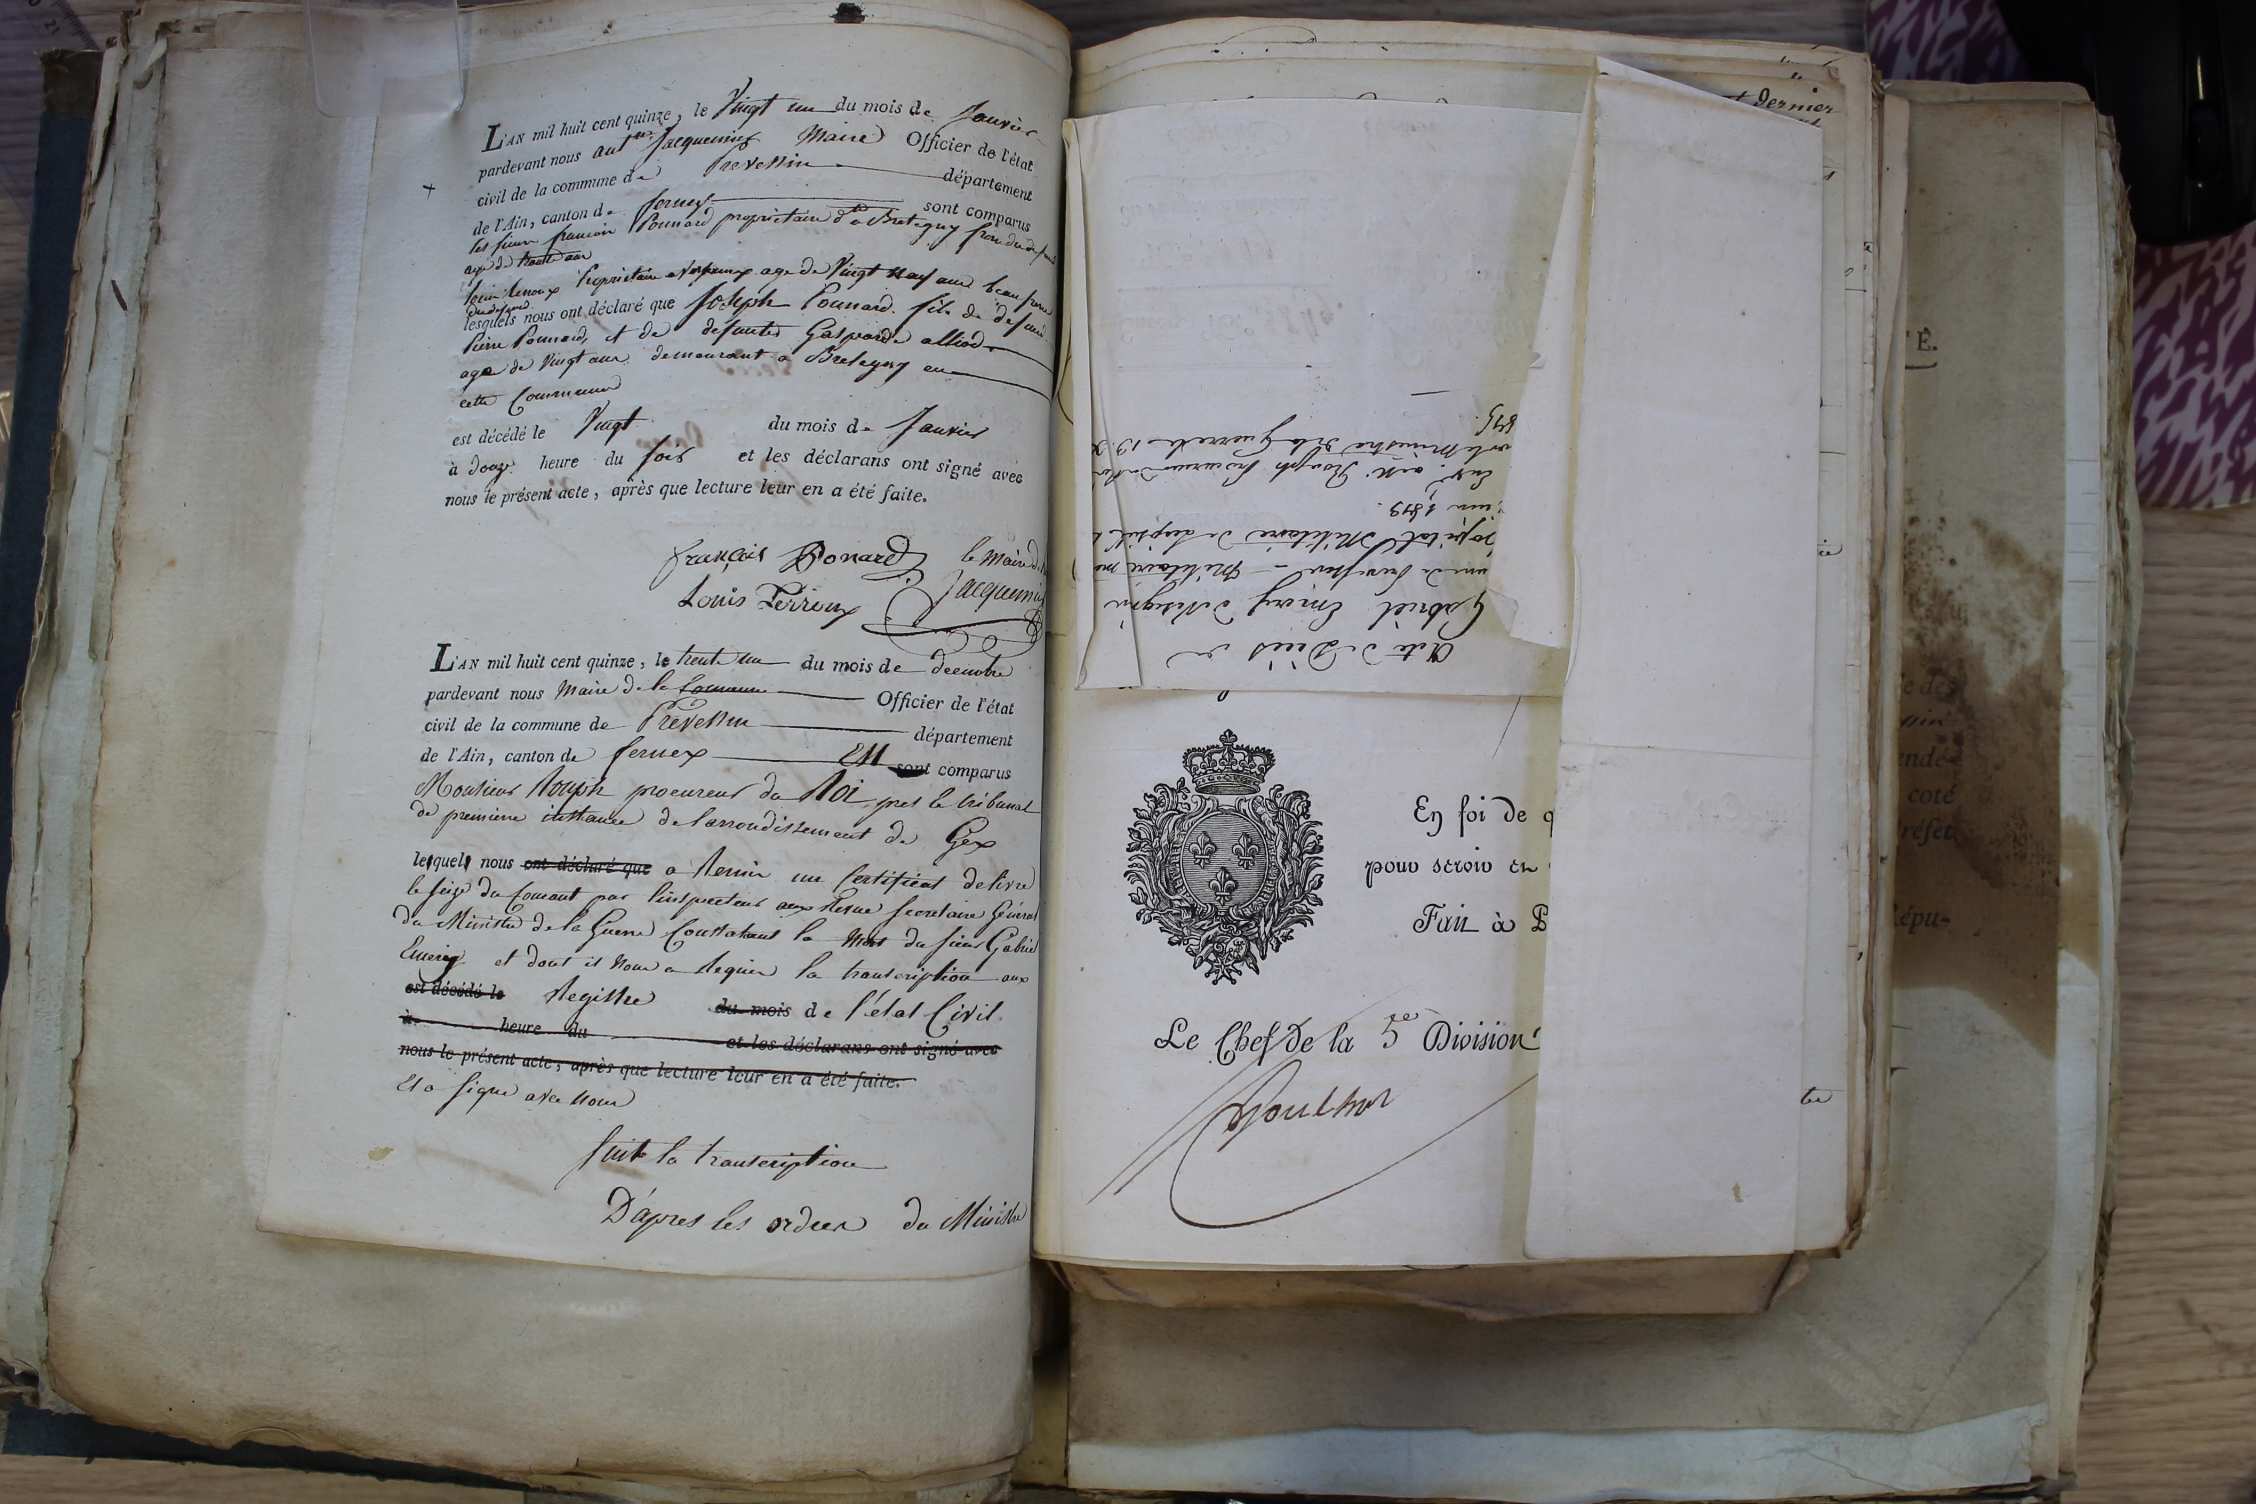 L'AN mil huit cent quinze, le Vingt un du mois de Janvier
pardevant nous antne Jacqueminx Maire Officier de l'état
civil de la commune de Prevessin département
de l'Ain, canton de ferney sont comparus
les sieurs francois Ponnard proprietaire dt a Bretegny frere du defunt
age de trente ans
Louis Perroux Proprietaire a age de Vingt neuf ans beau frere
du defunt
lesquels nous ont déclaré que Joseph Ponnard fils de defunt
Pierre Ponnard, et de defunte Gasparde alliod
age de Vingt ans demeurant a Bretegny en
cette Commune
est décédé le Vingt du mois de Janvier
à douze heure du soir et les déclarans ont signé avec
nous le présent acte, après que lecture leur en a été faite.
françois Ponard le Maire
Louis Perroux Jacquemin
L'AN mil huit cent quinze, le trente un du mois de decembre
pardevant nous Maire de la Commune Officier de l'état
civil de la commune de Prevessin département
de l'Ain, canton de fernex est sont comparus
Monsieur Rouph procureur du Roi pres le tribunal
de premiere instance de l'arrondissement de Gex
lesquels nous ont déclaré que a Remis un Certificat delivré
le seize du Courant par l'inspecteur aux Revue secretaire Géneral
du Ministre de la Guerre Constatant la Mort du sieur Gabriel
Emery et dont il Nous a Requier la transcription aux
est décédé le Registre du mois de l'état Civil.
à heure du et les déclarans ont signé avec
nous le présent acte, après que lecture leur en a été faite.
Et a signé avec Nous
suit la transcription
D'apres les ordres du Ministre
dernier
Acte de Décès de
Gabriel Emery
Militaire
hôpital Militaire de
juin 1813.
Env. à M. Rouph Procureur du Roi
par le Ministre de la Guerre le 19. Xbre
1815.
En foi de q
pour servir en
Fait à P
Le Chef de la 5e Division
É.
coté
réfet
Répu-